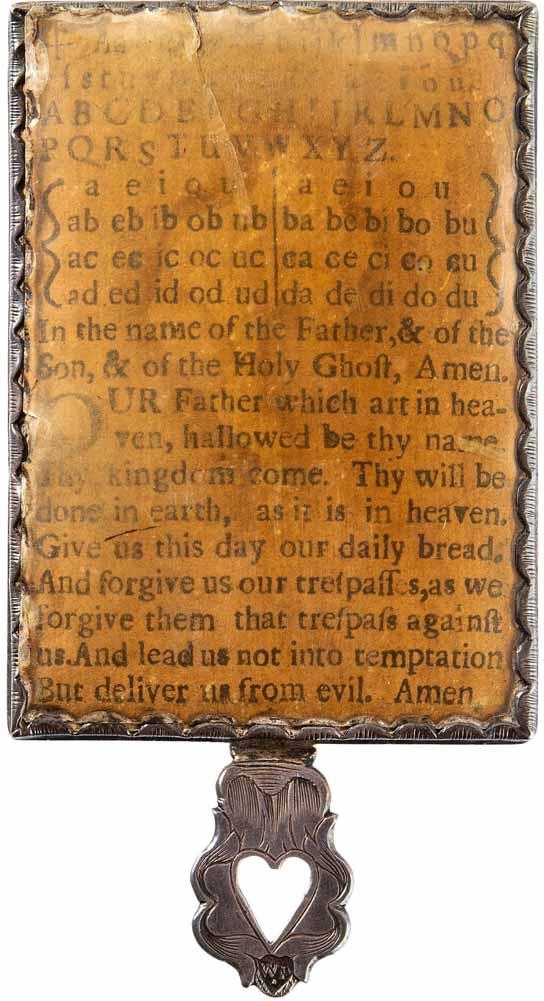 l m n o p q
ſ s t u o u
A B C D E F G H I J K L M N O
P Q R S T U V W X Y Z.
a e i o u a e i o u
ab eb ib ob ub ba be bi bo bu
ac ec ic oc uc ca ce ci co cu
ad ed id od ud da de di do du
In the name of the Father, & of the
Son, & of the Holy Ghoſt, Amen.
OUR Father which art in hea-
ven, hallowed be thy name.
Thy kingdom come. Thy will be
done in earth, as it is in heaven.
Give us this day our daily bread.
And forgive us our treſpaſſes, as we
forgive them that treſpaſs againſt
us. And lead us not into temptation
But deliver us from evil. Amen